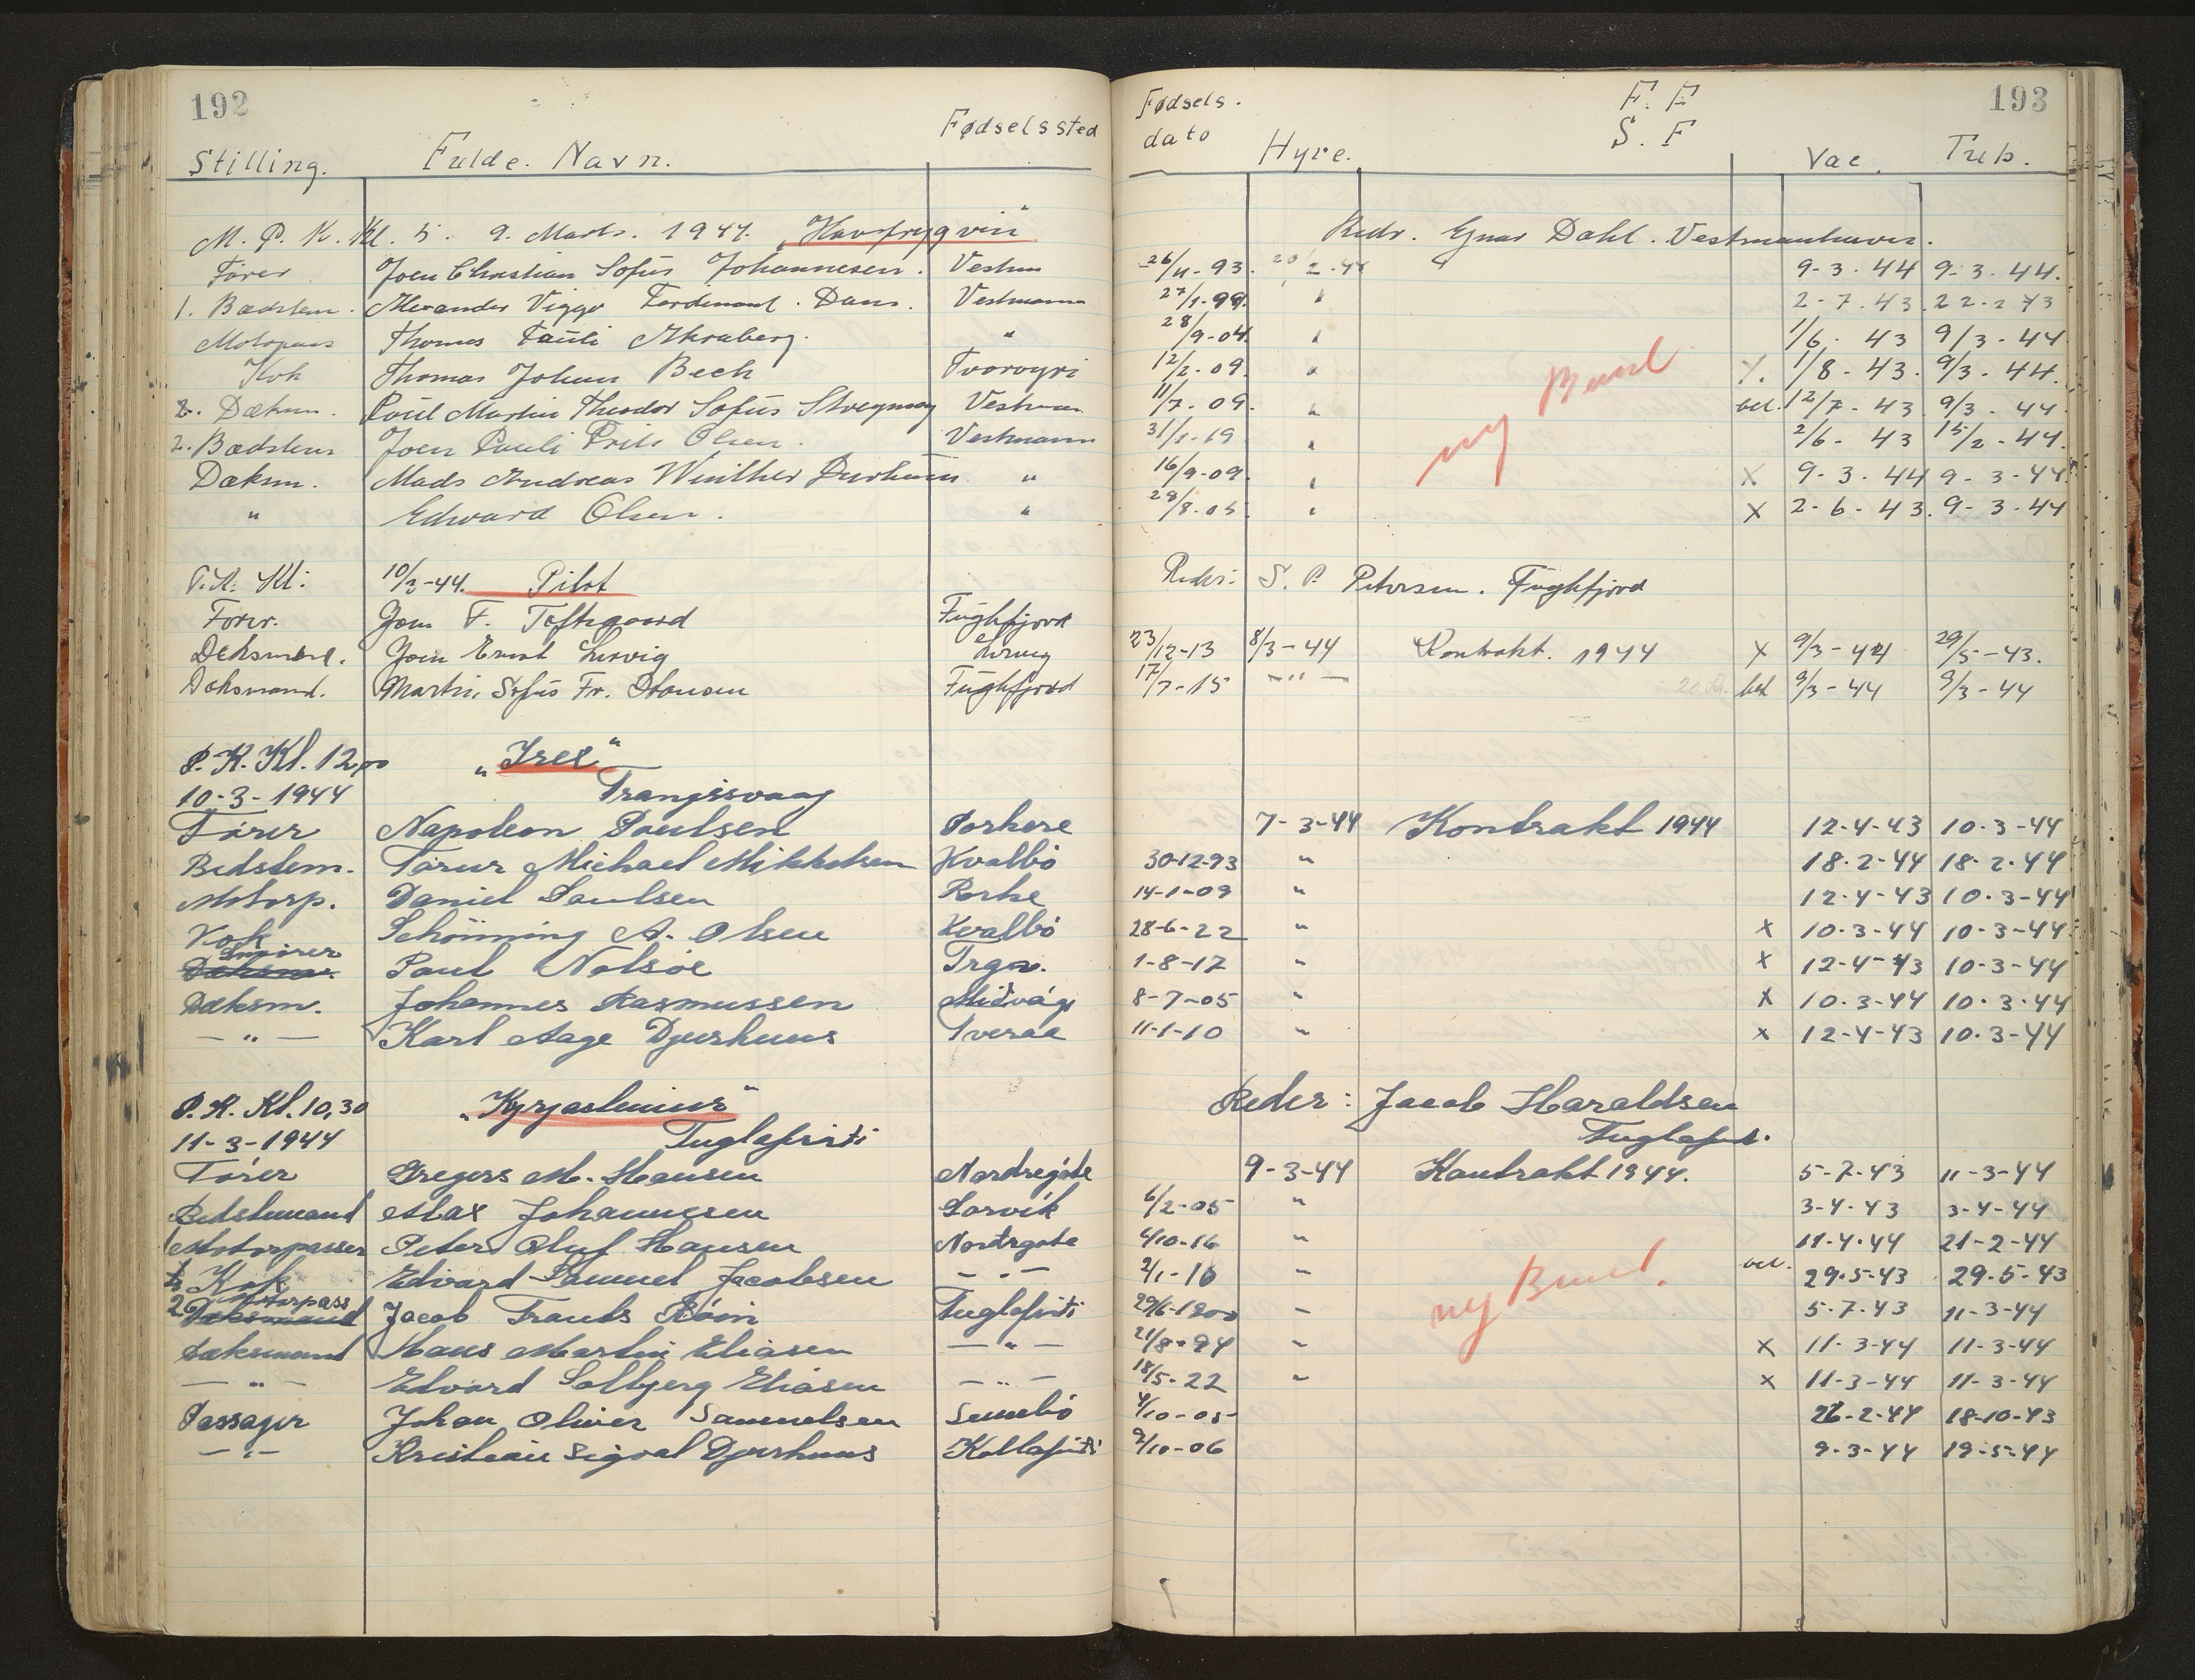 192
193
Stilling. Fulde. Navn. Fødselssted Fødsels. dato Hyre. F. F S. F Vac. Tub.
M. P. K. Kl. 5. 9. Marts. 1944. Redr. Ejnar Dahl. Vestmanhavn.
Fører Joen Christian Sofus Johannesen. Vestm 26/11-93. 20/2-44 9-3.44 9-3.44.
1. Bedstem. Alexander Viggo Ferdinant. Dam. Vestmann 27/1-99. " 2-7.43. 22-2 43
Motorpass Thomas Pauli Akraberg. " 28/9-04. " 1/6. 43 9/3-44
Kok Thomas Johan Bech Tvoroyri 12/2-09. " 1/8-43. 9/3-44.
2. Dæksm. Poul Martin Theodor Sofus Vestman 11/7-09. " bet. 12/7-43. 9/3-44
2. Bedstem Joen Pauli Frits Olsen. Vestmann 31/1-19 " 2/6-43 15/2-44.
Dæksm. Mads Andreas Winther Durhuus " 16/9-09. " X 9-3.44 9-3-44
" Edward Olsen. " 28/8-05. " X 2-6-43. 9-3-44
ny Bund
P.K. Kl: 10/3-44. Pilot Redr: S. P. Petersen. Fuglefjord
Fører. Joen F. Toftegaard Fuglefjord
Deksmand. Joen Ernst Lervig 23/12-13 8/3-44 Kontrakt. 1944 X 9/3-44 29/5-43.
Deksmand. Martin Sofus Fr. Fuglefjord 17/7-15 -"- bet 9/3-44 9/3-44
P. K. Kl. 12,00 „Irex"
10-3-1944 Trangisvaag
Fører Napoleon Poulsen Porkere 7-3-44 Kontrakt 1944 12-4-43 10-3-44
Bedstem. Tórur Michael Mikkelsen Kvalbö 30-12-93 " 18.2-44 18-2-44
Motorp. Daniel Poulsen Porke 14-1-09 " 12-4-43 10.3-44
Kok Schönning A. Olsen Kvalbö 28-6-22 " x 10-3-44 10-3-44
Smörer
Dæksm. Poul Nolsöe Trgv. 1-8-17 " x 12-4-43 10-3-44
Dæksm. Johannes Rasmussen Miðvági 8-7-05 " x 10.3-44 10.3.44
-"- Karl Aage Djurhuus Tveraa 11-1-10 " x 12-4-43 10.3-44
P. K. Kl. 10,30 Reder: Jacob Haraldsen
11-3-1944 Fuglafirði Fuglafirð.
Fører Gregers M. Hansen Nordregöte 9-3-44 Kontrakt 1944. 5-7-43 11-3-44
Bedstemand Max Johannesen Lorvík 6/2-05 " 3-4-43 3-4-44
1 Motorpasser Peter Oluf Hansen Nordrgøta 4/10-16 " 11-4-44 21-2-44
Kok Edvard Samuel Jacobsen -"- 2/1-10 " bet. 29.5-43 29.5-43
2 Motorpass
Dæksmand Jacob Frants Röin Fuglafirði 29/6-1900 " 5-7-43 11-3-44
Dæksmand Hans Martin Eliasen -"- 21/8-94 " x 11-3-44 11-3-44
-"- Edvard Solbjerg Eliasen -"- 18/5-22 " x 11-3-44 11-3-44
Passager Johan Oliver Samuelsen Sumbö 4/10-05 26-2-44 18-10-43
-"- Kristian Sigval Djurhuus Kollafirði 2/10-06 9-3-44 19-5-44
ny Bund.